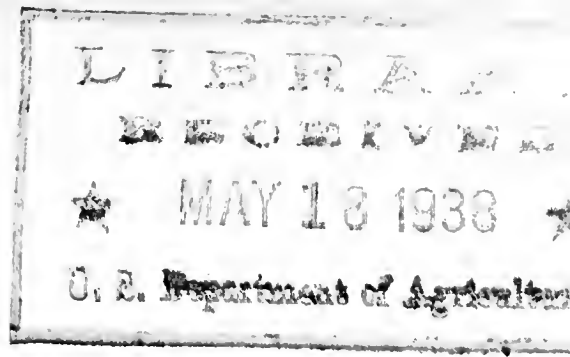 LIBRA
RECEIVED
★ MAY 13 1938 ★
U. S. Department of Agriculture